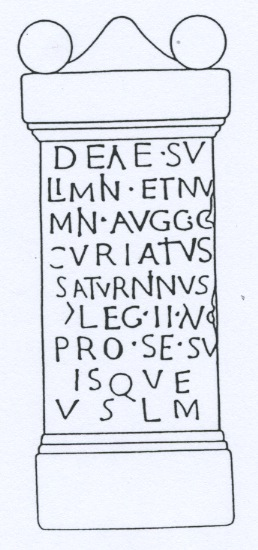 DEΛE·SV
LIMN·ETNV
MN·AVGG·C
CVRIATVS
SATVRNNVS
>LEG·II·
PRO·SE·SV
ISQVE
V S L M